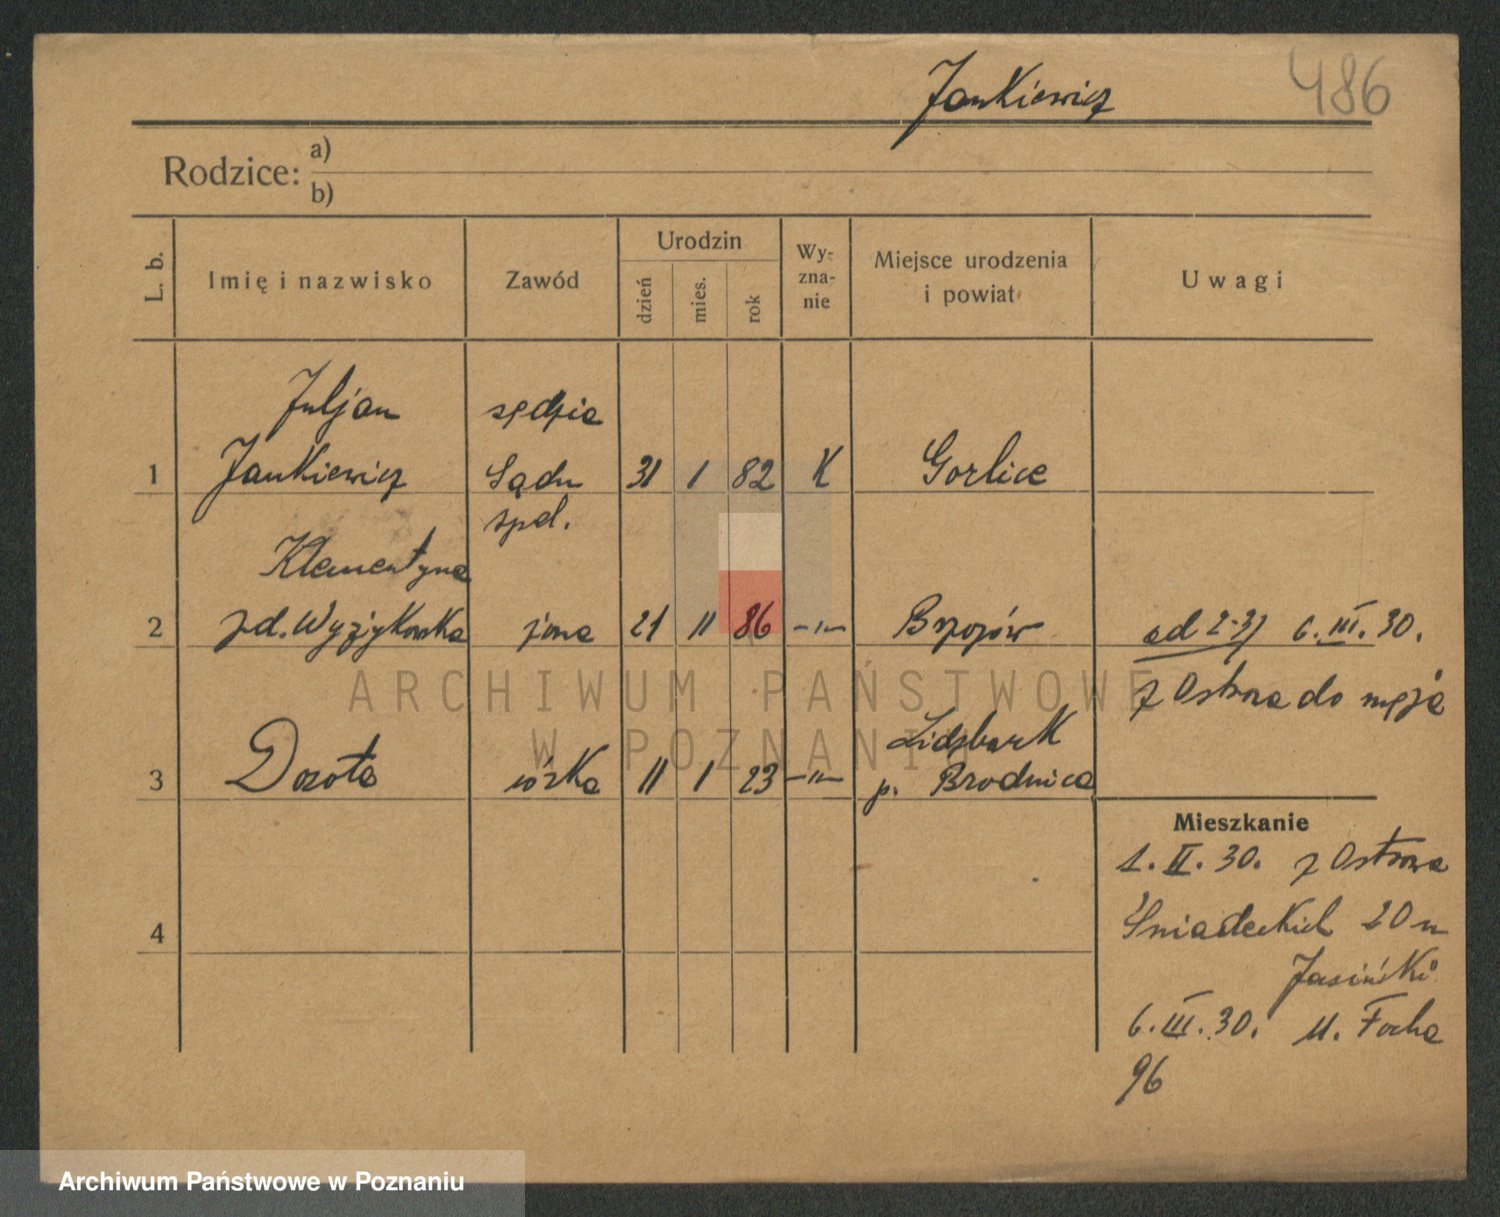 Jankiewicz 486
Rodzice: a)
b)
L. b. Imię i nazwisko Zawód Urodzin dzień mies. rok Wyznanie Miejsce urodzenia i powiat Uwagi
Juljan sędzia
1 Jankiewicz Sądu 31 1 82 K Gorlice
apel.
Klementyna
2 zd. Wyżykowska żona 21 11 86 -"- Brzozów ad 2-3) 6.III.30.
z Ostrowa do męża
Lidzbark
3 Dorota córka 11 1 23 -"- p. Brodnica
Mieszkanie
1.II.30. z Ostrowa
4 Śniadeckich 20 u
Jasiński
6.III.30. M. Focha
96
ARCHIWUM PAŃSTWOWE
W POZNANIU
Archiwum Państwowe w Poznaniu